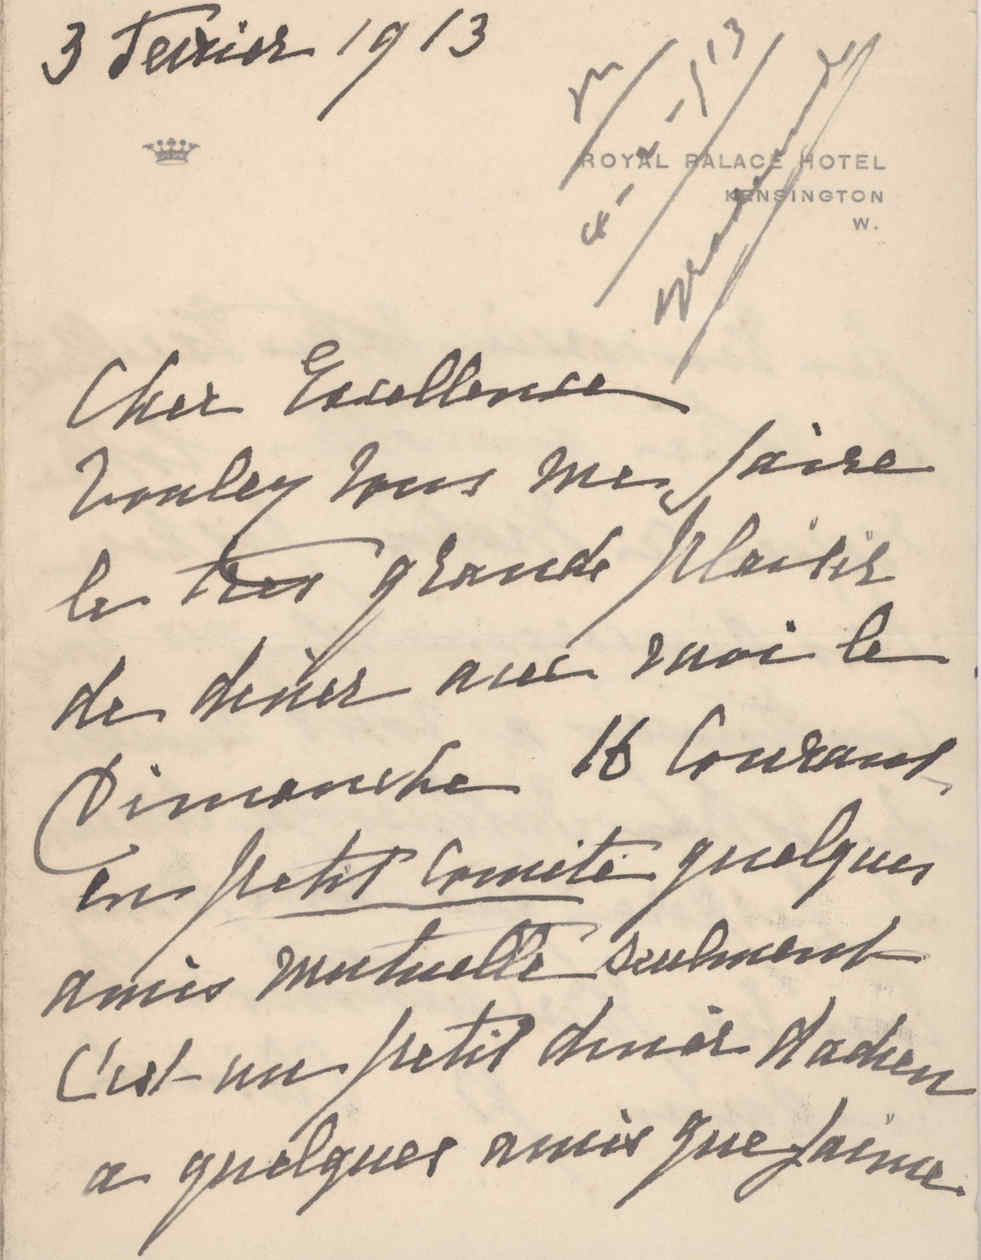 3 Fevrier 1913
4-2-13
ROYAL PALACE HOTEL
KENSINGTON
W.
Cher Excellence
Voulez Vous me faire
le tres grande plaisir
de diner avec moi le
Dimanche 16 Courant
en petit Comité quelques
amis mutuelle seulment
C'est un petit diner d'adieu
a quelques amis que j'aime